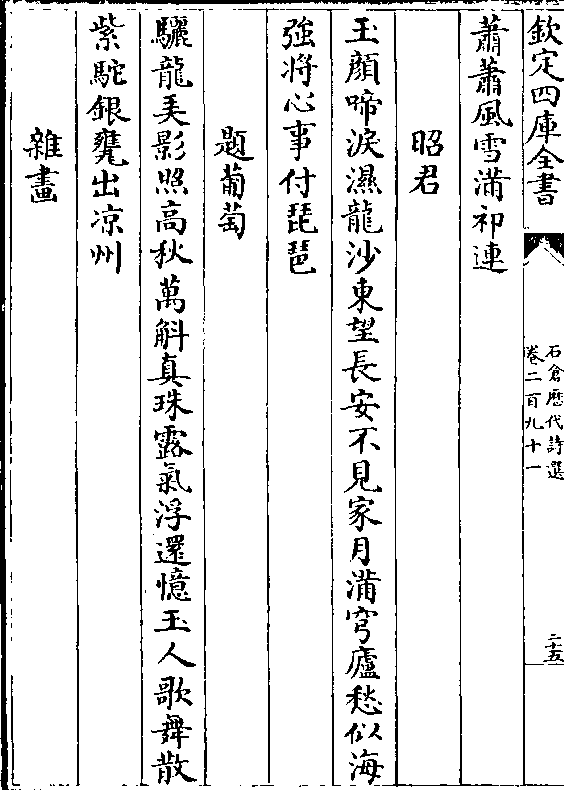 欽定四庫全書
石倉歷代詩選
卷二百九十一
二十五
蕭蕭風雪滿祁連
昭君
玉顔啼淚濕龍沙東望長安不見家月滿穹廬愁似海
強將心事付琵琶
題葡萄
驪龍弄影照高秋萬斛真珠露氣浮還憶玉人歌舞散
紫駝銀甕出凉州
雜畫